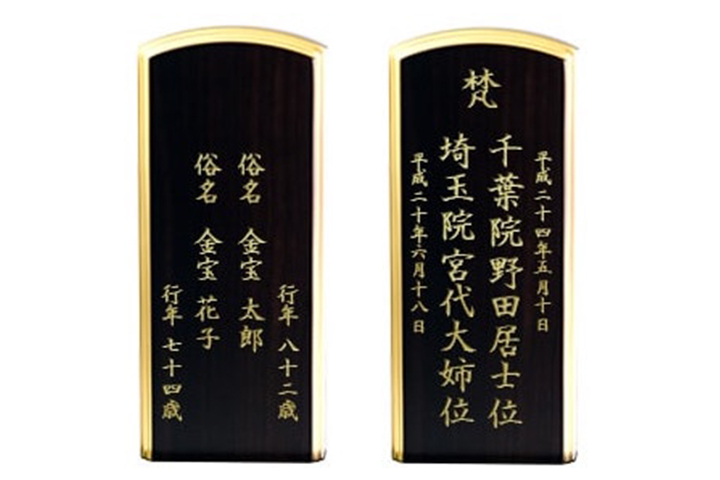 行年 八十二歳
俗名 金宝 太郎
俗名 金宝 花子
行年 七十四歳
梵
平成二十四年五月十日
千葉院野田居士位
埼玉院宮代大姉位
平成二十年六月十八日